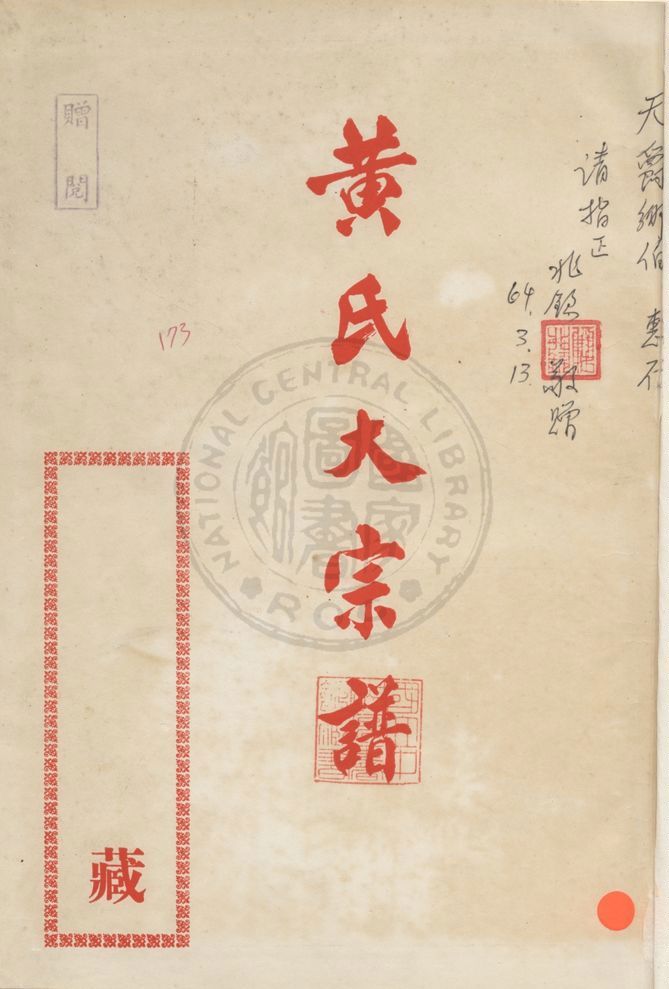 天爵鄉伯 惠存
請指正
兆銀 敬贈
64.3.13.
黃氏大宗譜
贈閱
173
藏
NATIONAL CENTRAL LIBRARY
R.O.C.
國家圖書館